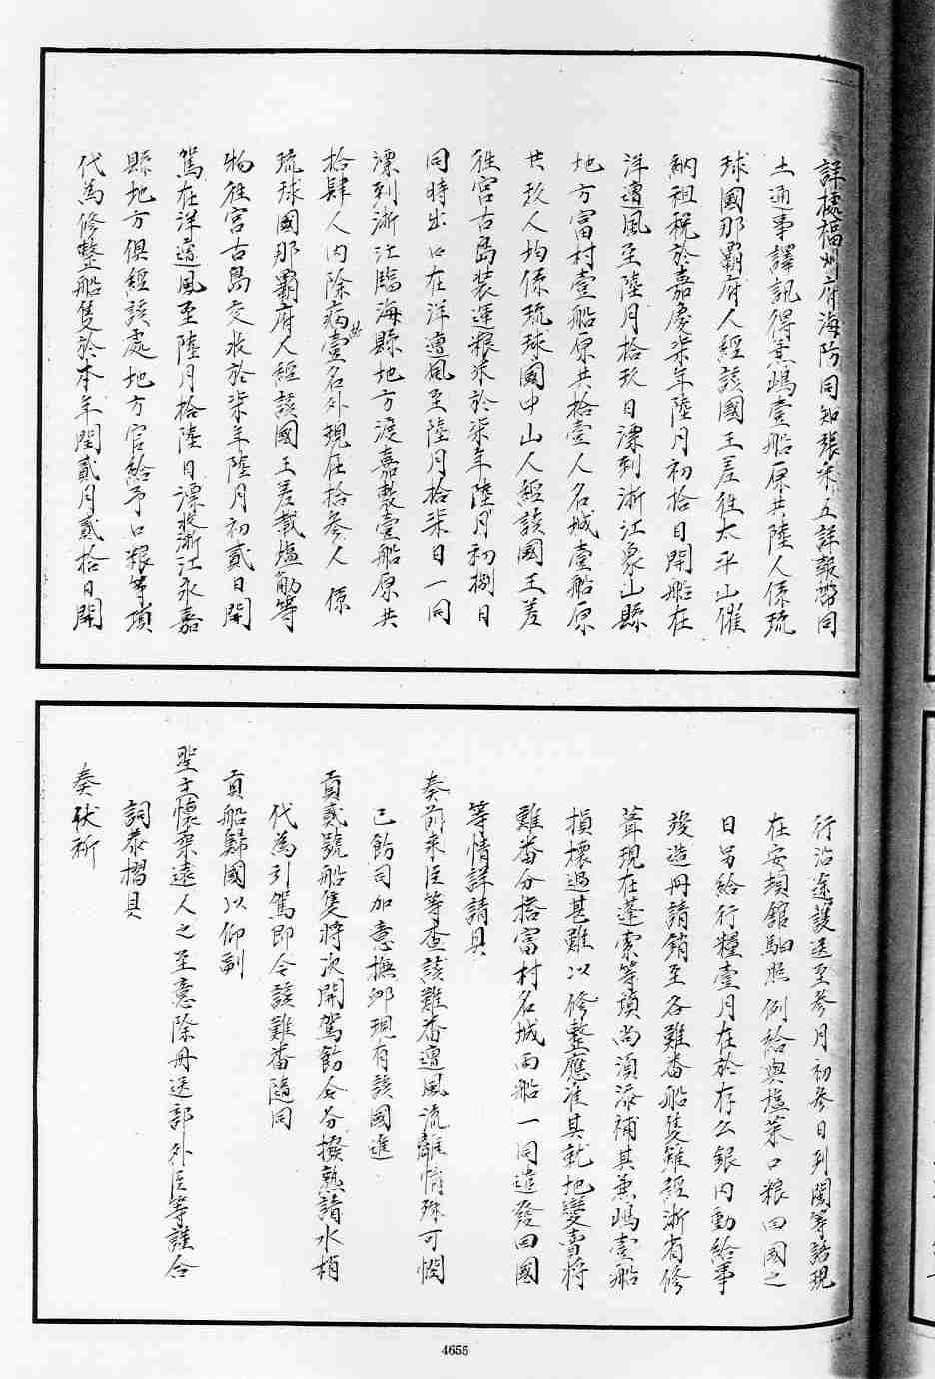 詳據福州府海防同知張采五詳報帶同
土通事譯訊得兼嶋壹船原共陸人係琉
球國那霸府人經該國王差徃太平山催
納祖稅於嘉慶柒年陸月初拾日開船在
洋遭風至陸月拾玖日漂到浙江象山縣
地方富村壹船原共拾壹人名城壹船原
共玖人均係琉球國中山人經該國王差
徃宮古島装運粮米於柒年陸月初捌日
同時出口在洋遭風至陸月拾柒日一同
漂到浙江臨海縣地方渡嘉敷壹船原共
拾肆人内除病故壹名外現在拾叁人係
琉球國那霸府人經該國王差載塩觔等
物徃宮古島交收於柒年陸月初貳日開
駕在洋遭風至陸月拾陸日漂收浙江永嘉
縣地方俱經該處地方官給予口粮等項
代為修整船隻於本年閏貳月貳拾日開
行沿途護送至叁月初叁日到閩等語現
在安頓舘驛照例給與塩菜口粮回國之
日另給行糧壹月在於存公銀内動給事
竣造冊請銷至各難番船隻雖經浙省修
葺現在蓬索等項尚須添補其兼嶋壹船
損壞過甚難以修整應准其就地變賣將
難番分搭富村名城両船一同遣發回國
等情詳請具
奏前來臣等查該難番遭風流離情殊可憫
已飭司加意撫卹現有該國進
貢貳號船隻將次開駕飭令分撥熟諳水梢
代為引駕即令該難番隨同
貢船歸國以仰副
聖主懷柔遠人之至意除冊送部外臣等謹合
詞恭摺具
奏伏祈
4655